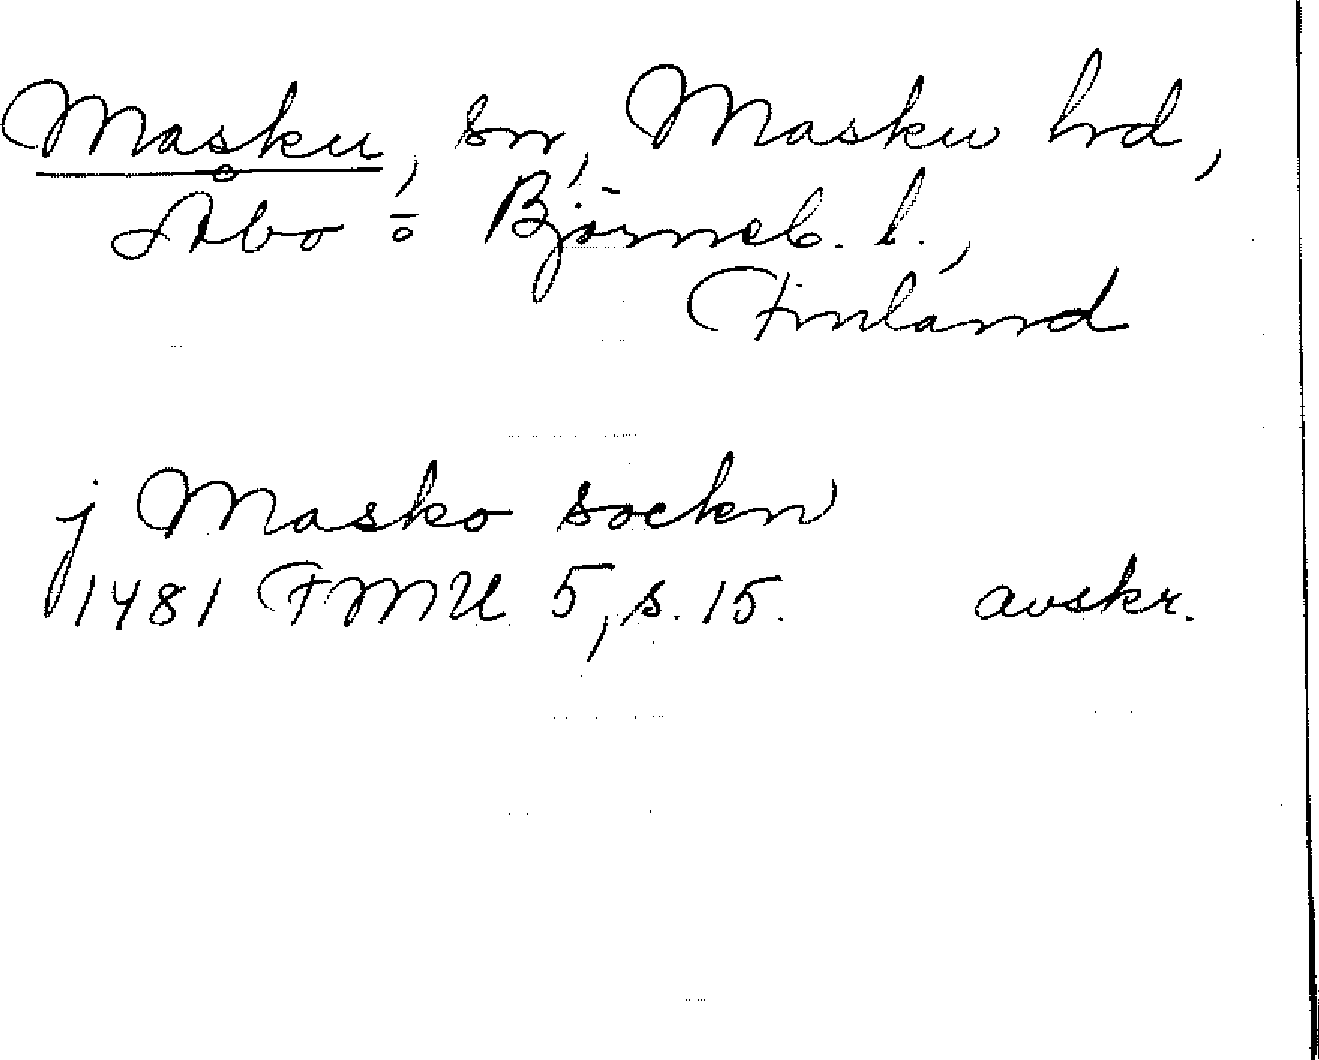 Masku, sn, Masku hd,
Åbo o Björneb. l.,
Finland
j Masko sockn
1481 FMU 5, s. 15. avskr.